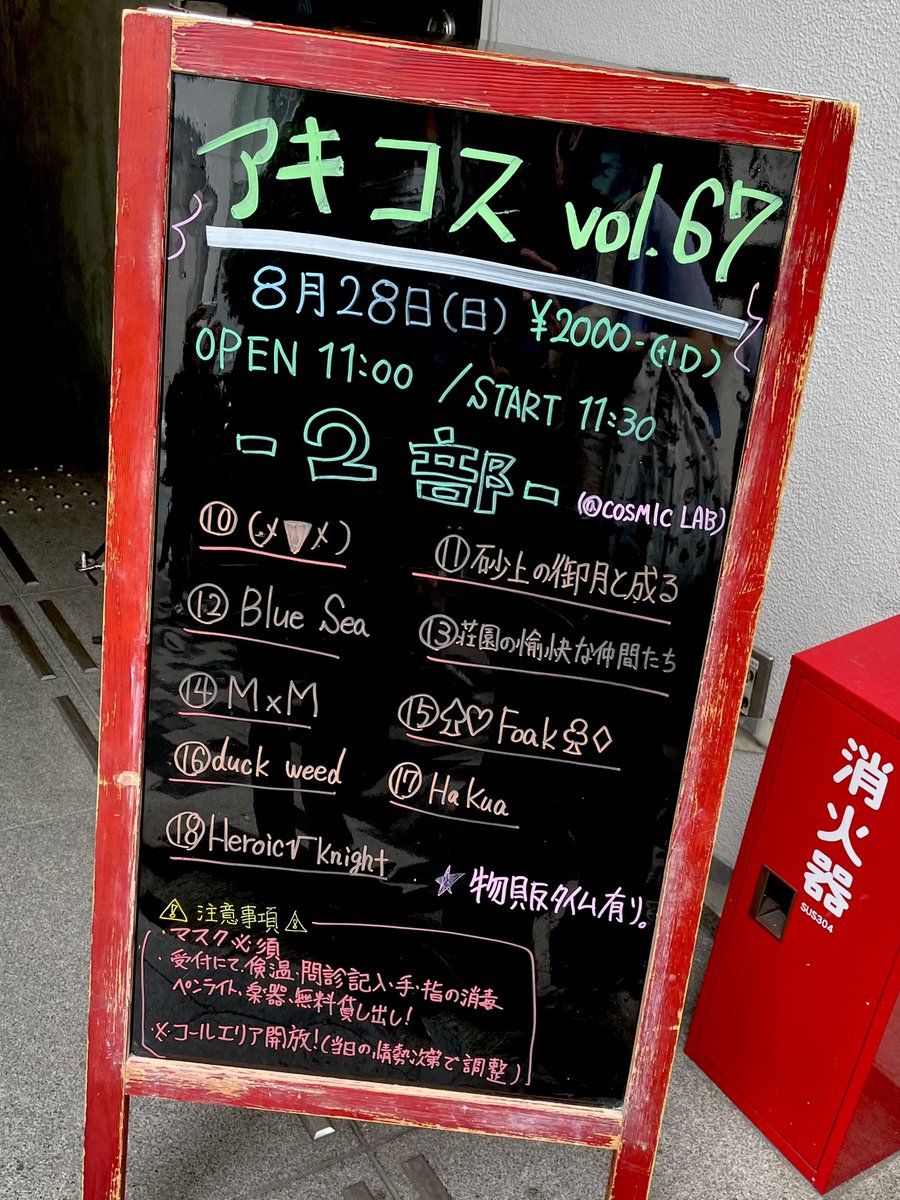 アキコス vol.67
8月28日(日) ¥2000-(+1D)
OPEN 11:00 /START 11:30
-2部- (@COSMIC LAB)
⑩(メ▽メ)
⑪砂上の御月と成る
⑫Blue Sea
⑬荘園の愉快な仲間たち
⑭M×M
⑮♤♡Foak♧♢
⑯duck weed
⑰Hakua
⑱Heroic√knight
★物販タイム有り。
⚠注意事項⚠
・マスク必須
・受付にて、検温、問診記入、手・指の消毒
ペンライト、楽器、無料貸し出し!
・※コールエリア開放!(当日の情勢次第で調整)
消火器
SUS304